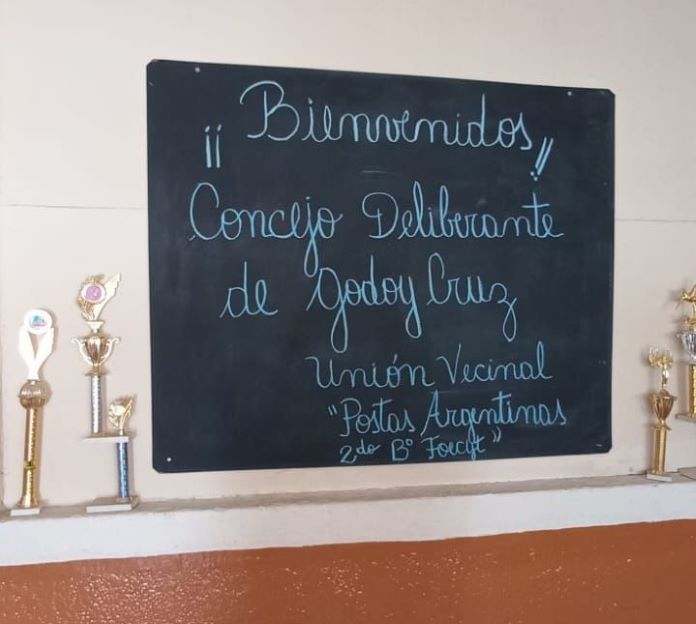 ¡¡ Bienvenidos!!
Concejo Deliberante
de Godoy Cruz
Unión Vecinal
"Postas Argentinas
2do Bº Foecyt"